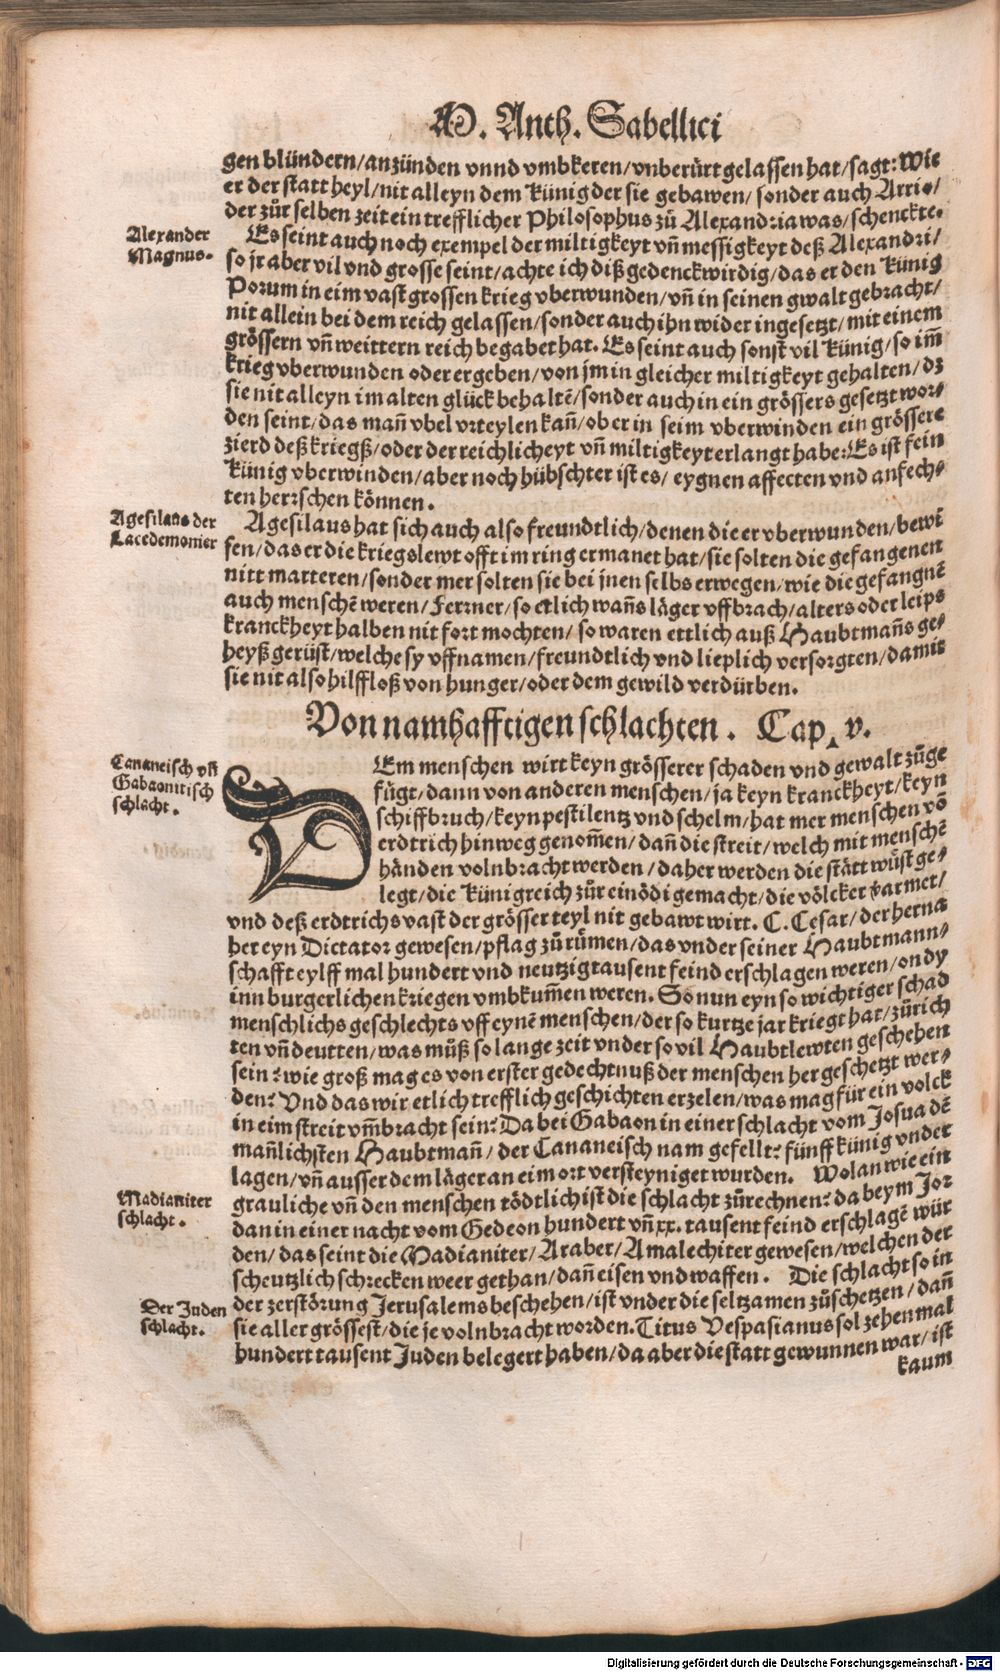 M. Anth. Sabellici
gen blündern/anzünden vnnd vmbkeren/vnberürt gelassen hat/sagt: Wie
er der statt heyl/nit alleyn dem Künig der sie gebawen/sonder auch Arrio/
der zůr selben zeit ein trefflicher Philosophus zů Alexandria was/schenckte.
Alexander
Magnus.
Es seint auch noch exempel der miltigkeyt vñ messigkeyt deß Alexandri/
so jr aber vil vnd grosse seint/achte ich diß gedenckwirdig/das er den Künig
Porum in eim vast grossen krieg vberwunden/vñ in seinen gwalt gebracht/
nit allein bei dem reich gelassen/sonder auch ihn wider ingesetzt/mit einem
grössern vñ weittern reich begabet hat. Es seint auch sonst vil Künig/so im̃
krieg vberwunden oder ergeben/von jm in gleicher miltigkeyt gehalten/dz
sie nit alleyn im alten glück behaltẽ/sonder auch in ein grössers gesetzt wor-
den seint/das mañ vbel vrteylen kañ/ob er in seim vberwinden ein grössere
zierd deß kriegß/oder der reichlicheyt vñ miltigkeyt erlangt habe: Es ist fein
Künig vberwinden/aber noch hübschter ist es/eygnen affecten vnd anfech-
ten herrschen können.
Agesilaus der
Lacedemonier
Agesilaus hat sich auch also freundtlich/denen die er vberwunden/bewi
sen/das er die kriegslewt offt im ring ermanet hat/sie solten die gefangenen
nitt marteren/sonder mer solten sie bei jnen selbs erwegen/wie die gefangnẽ
auch menschẽ weren/Ferrner/so etlich wañs läger vffbrach/alters oder leips
kranckheyt halben nit fort mochten/so waren ettlich auß Haubtmañs ge-
heyß gerüst/welche sy vffnamen/freundtlich vnd lieplich versorgten/damit
sie nit also hilffloß von hunger/oder dem gewild verdürben.
Von namhafftigen schlachten. Cap. v.
Cananeisch vñ
Gabaonitisch
schlacht.
DEm menschen wirt keyn grösserer schaden vnd gewalt zůge
fügt/dann von anderen menschen/ja keyn kranckheyt/keyn
schiffbruch/keyn pestilentz vnd schelm/hat mer menschen võ
erdtrich hinweg genom̃en/dañ die streit/welch mit menschẽ
händen volnbracht werden/daher werden die stätt wüst ge-
legt/die Künigreich zůr einödi gemacht/die völcker verarmet/
vnd deß erdtrichs vast der grösser teyl nit gebawt wirt. C. Cesar/der herna
her eyn Dictator gewesen/pflag zů rümen/das vnder seiner Haubtmann-
schafft eylff mal hundert vnd neutzig tausent feind erschlagen weren/on dy
inn burgerlichen kriegen vmbkum̃en weren. So nun eyn so wichtiger schad
menschlichs geschlechts vff eynẽ menschen/der so kurtze jar kriegt hat/zůrich
ten vñ deutten/was můß so lange zeit vnder so vil Haubtlewten geschehen
sein? wie groß mag es von erster gedechtnuß der menschen her geschetzt wer-
den? Vnd das wir etlich trefflich geschichten erzelen/was mag für ein volck
in eim streit vm̃bracht sein? Da bei Gabaon in einer schlacht vom Josua dẽ
mañlichsten Haubtmañ/der Cananeisch nam gefellt? fünff künig vnder
lagen/vñ ausser dem läger an eim ort versteyniget wurden. Wolan wie ein
Madianiter
schlacht.
grauliche vñ den menschen tödtlich ist die schlacht zůrechnen? da beym Jor
dan in einer nacht vom Gedeon hundert vñ xx. tausent feind erschlagẽ wür
den/das seint die Madianiter/Araber/Amalechiter gewesen/welchen der
scheutzlich schrecken weer gethan/dañ eisen vnd waffen. Die schlacht so in
Der Juden
schlacht.
der zerstörung Jerusalems beschehen/ist vnder die seltzamen zůschetzen/dañ
sie aller grössest/die je volnbracht worden. Titus Vespasianus sol zehen mal
hundert tausent Juden belegert haben/da aber die statt gewunnen war/ist
kaum
Digitalisierung gefördert durch die Deutsche Forschungsgemeinschaft - DFG